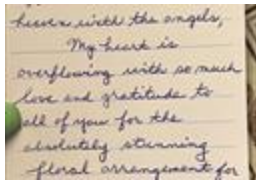 heaven with the angels,
My heart is
overflowing with so much
love and gratitude to
all of you for the
absolutely stunning
floral arrangement for